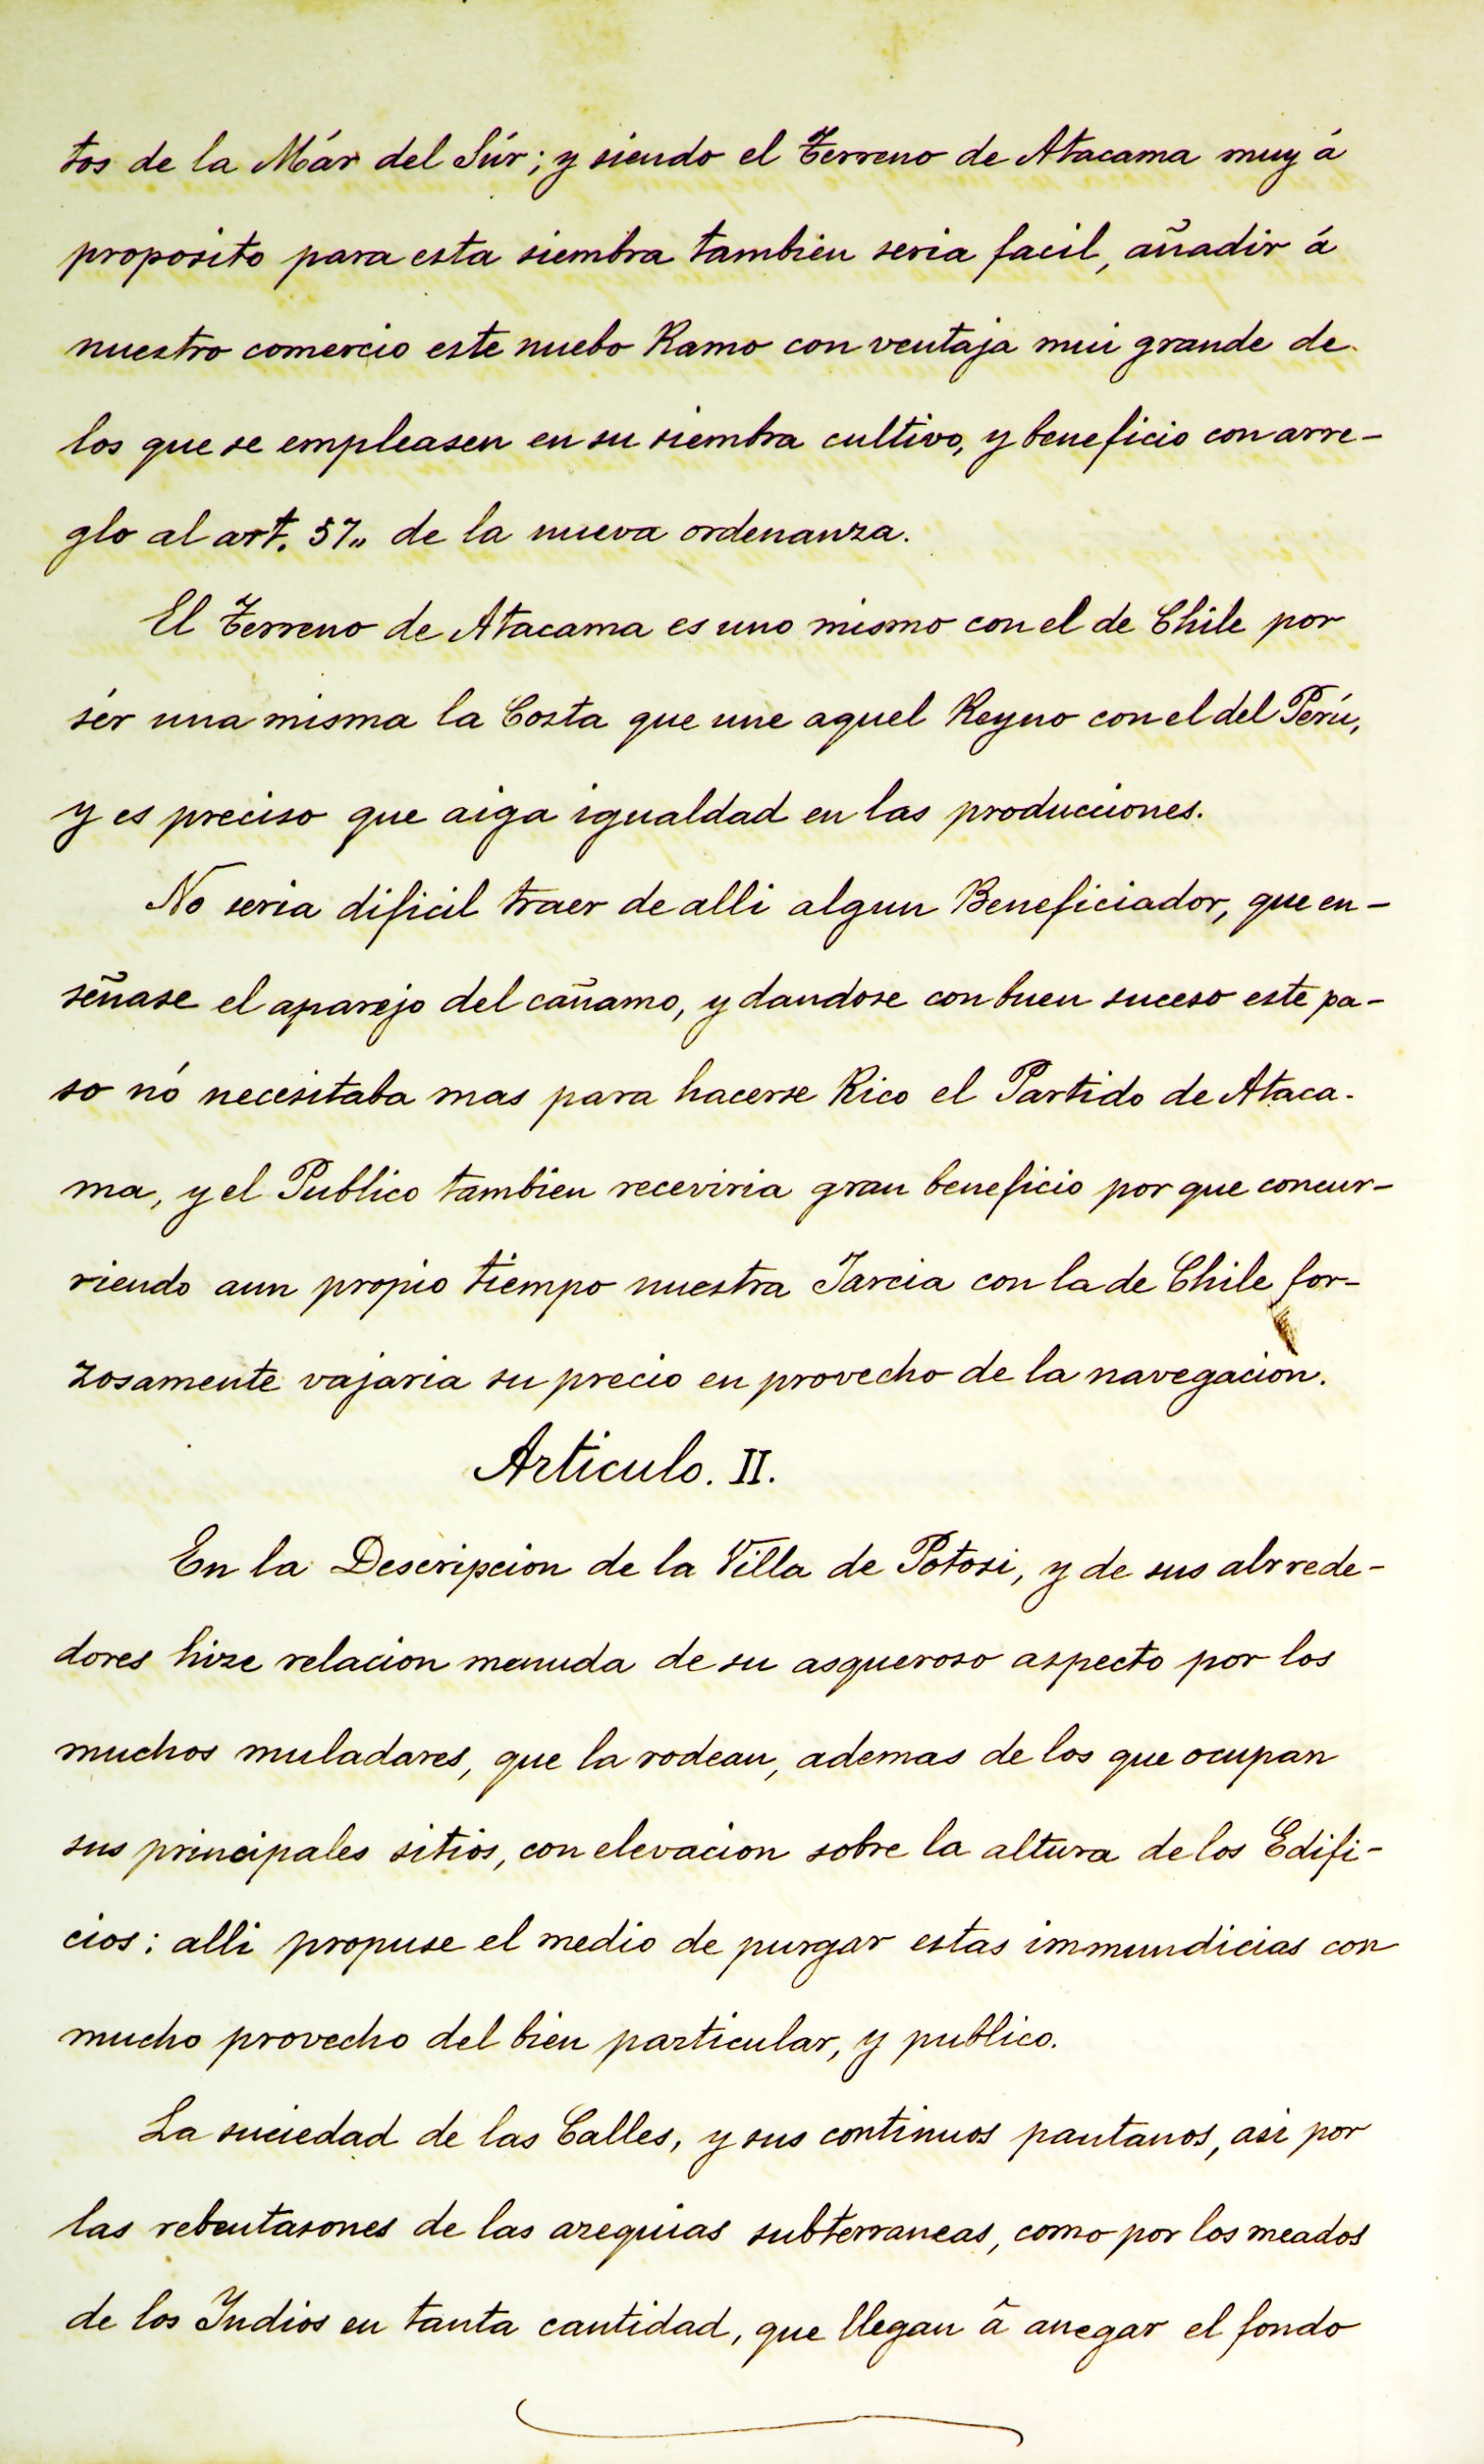 tos de la Már del Súr; y siendo el Terreno de Atacama muy á
proposito para esta siembra tambien seria facil, añadir á
nuestro comercio este nuebo Ramo con ventaja mui grande de
los que se empleasen en su siembra cultivo, y beneficio con arre-
glo al art. 57,, de la nueva ordenanza.
El Terreno de Atacama es uno mismo con el de Chile por
sér una misma la Costa que une aquel Reyno con el del Perú,
y es preciso que aiga igualdad en las producciones.
No seria dificil traer de alli algun Beneficiador, que en-
señase el aparejo del cañamo, y dandose con buen suceso este pa-
so nó necesitaba mas para hacerse Rico el Partido de Ataca-
ma, y el Publico tambien receviria gran beneficio por que concur-
riendo aun propio tiempo nuestra Jarcia con la de Chile for-
zosamente vajaria su precio en provecho de la navegacion.
Articulo. II.
En la Descripcion de la Villa de Potosi, y de sus alrrede-
dores hize relacion menuda de su asqueroso aspecto por los
muchos muladares, que la rodean, ademas de los que ocupan
sus principales sitios, con elevacion sobre la altura de los Edifi-
cios: alli propuse el medio de purgar estas immundicias con
mucho provecho del bien particular, y publico.
La suciedad de las Calles, y sus continuos pantanos, asi por
las rebentasones de las azequias subterraneas, como por los meados
de los Indios en tanta cantidad, que llegan â anegar el fondo